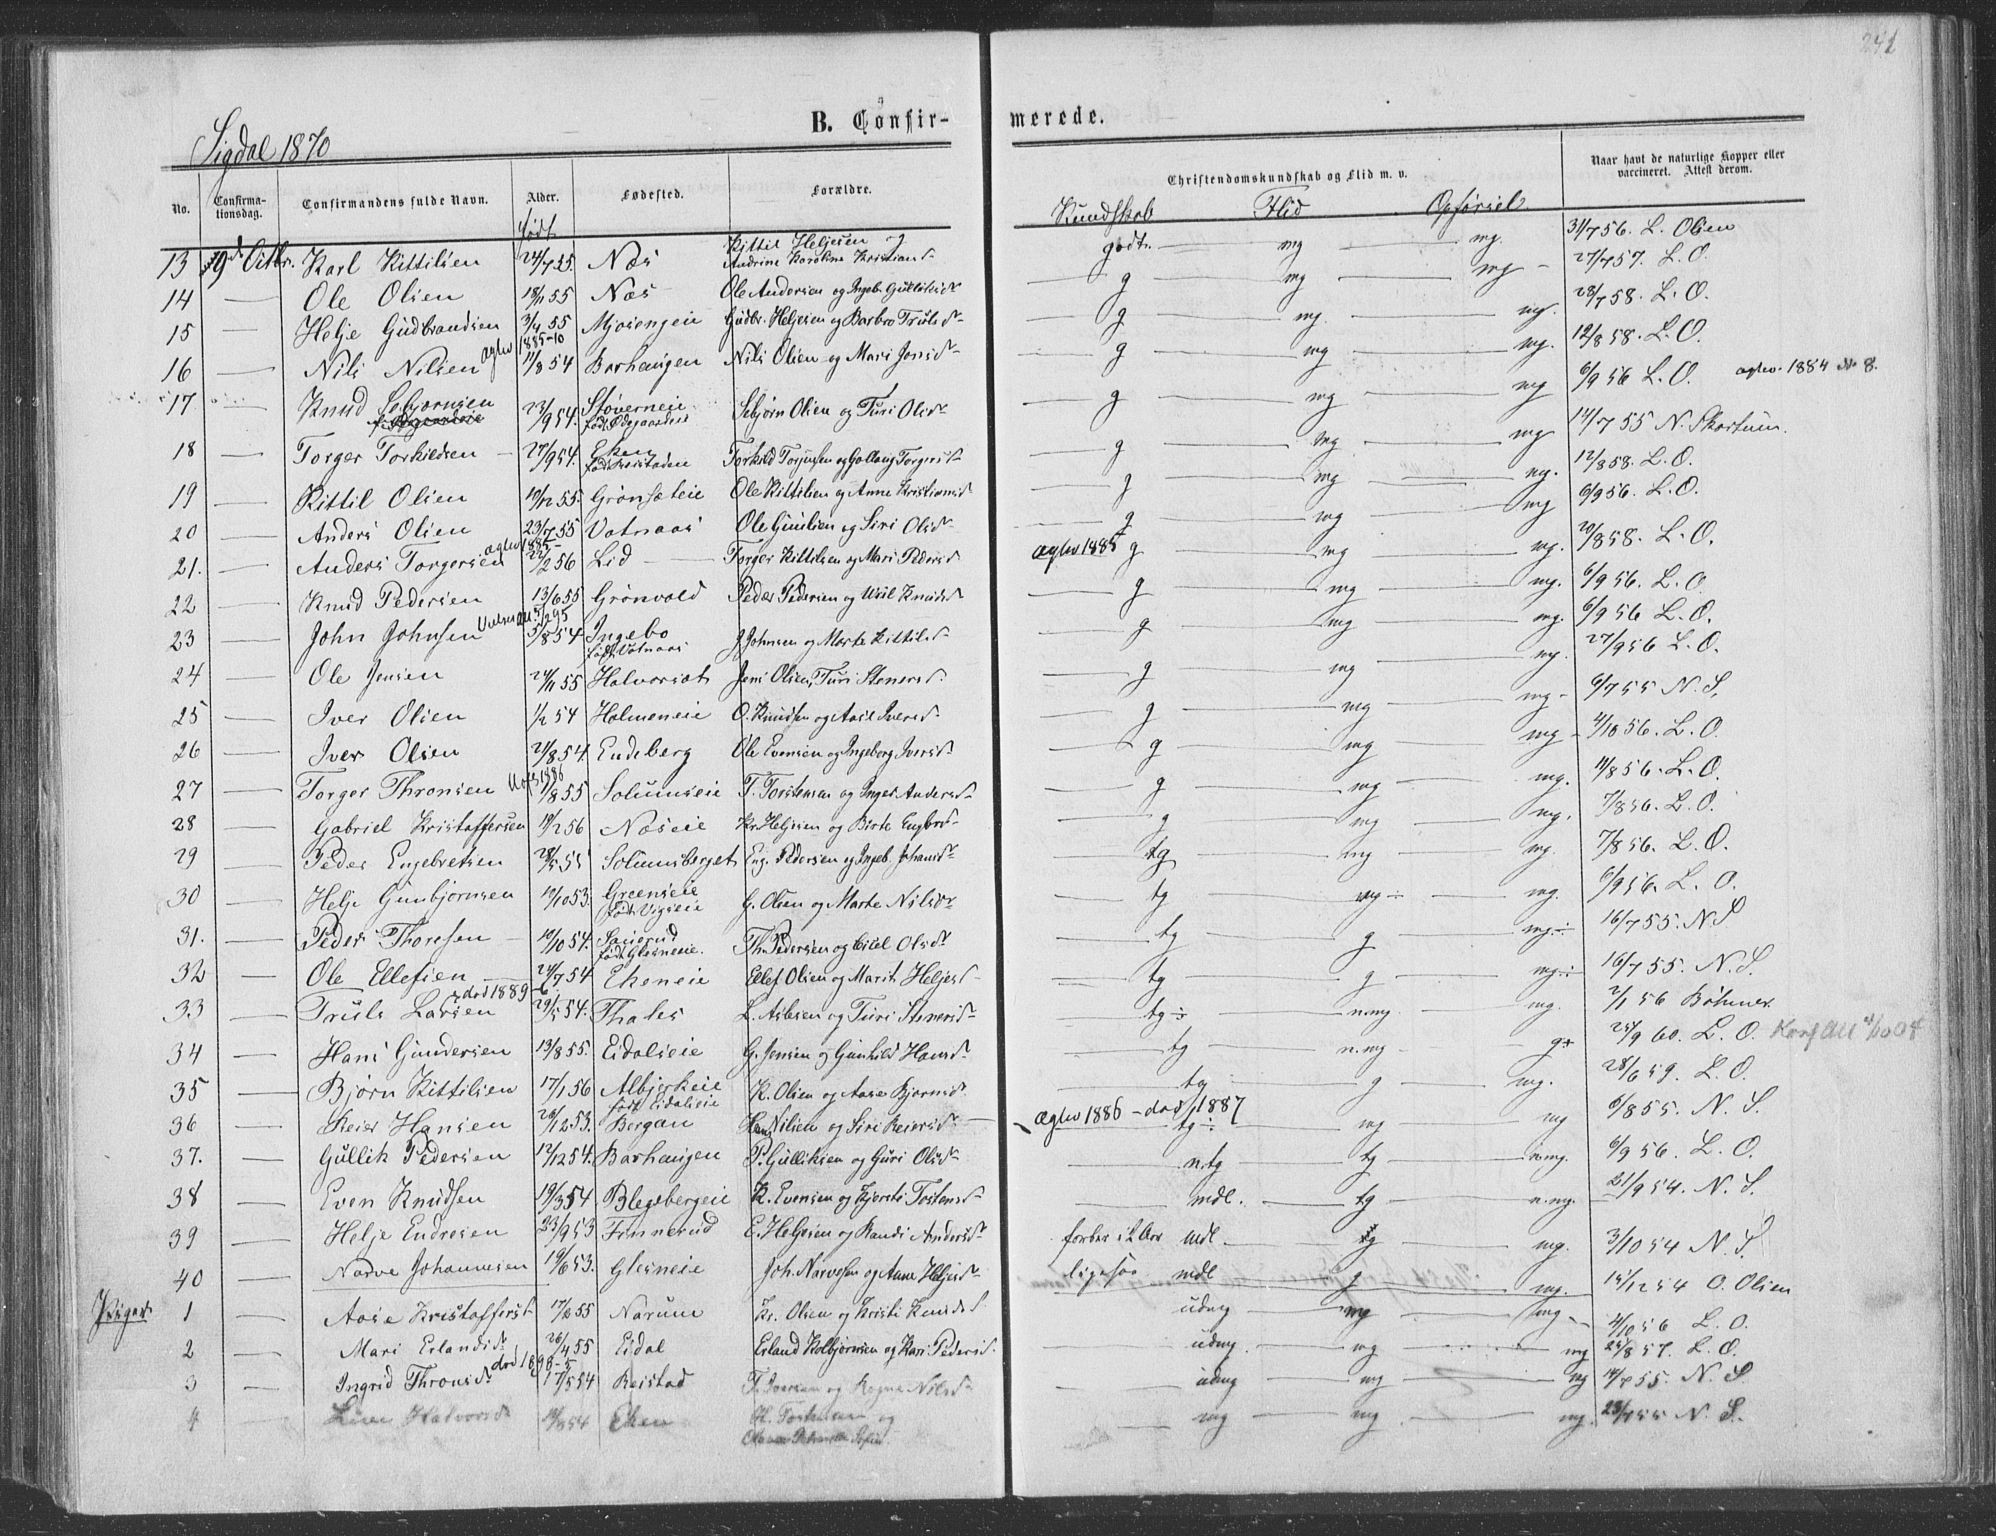 241
Sigdal 1870
B. Confir- merede.
No. Confirma-tionsdag. Confirmandens fulde Navn. Alder. Fødested. Forældre. Christendomskundskab og Flid m. v. Naar havt de naturlige Kopper eller vaccineret. Attest derom.
født Kundskab Flid Opførsel
13 9de Octbr. Karl Kittilsen 24/7 55 Næs Kittil Heljesen og Andrine Karoline Kristiansd. godt mg mg. 31/7 56. L. Olsen
14 Ole Olsen 18/11 55 Næs Ole Andersen og Ingeb. Gulliksd. g mg mg 27/7 57. L. O.
15 Helje Gudbrandsen 3/4 55 Mjøsengeie Gudbr. Heljesen og Barbro Trulsd. g mg. mg. 28/7 58. L. O.
16 Nils Nilsen ægtev 1885-10 11/8 54 Borhaugen Nils Olsen og Mari Jonsd. g mg mg. 12/8 58. L. O.
17 Knud Sebjørnsen 23/9 54. Støverneie født Ødegaardeie Sebjørn Olsen og Turi Olsd. g mg mg 6/9 56 L. O. ægtev. 1884 No 8.
18 Torger Torkildsen 27/9 54. Eken født Reistaden Torkild Torjusen og Gollaug Torgersd. g mg mg 14/7 55 N. Skartum.
19 Kittil Olsen 10/12 55. Grønsæteie Ole Kittilsen og Anne Kristiansd. g mg mg. 12/8 58. L. O.
20 Anders Olsen 23/7 55 Votnaas Ole Guulsen og Siri Olsd. g mg mg 6/9 56. L. O.
21. Anders Torgersen ægtev 1885 22/2 56 Lid Torger Kittilsen og Mari Pedersd. ægtev 1885 g mg mg. 20/8 58. L. O.
22 Knud Pedersen 13/6 55 Grønvold Peder Pedersen og Knudsd. g mg mg. 6/9 56. L. O.
23 John Johnsen 5/8 54 Ingebo født Votnaas J. Johnsen og Marte Kittilsd. g mg mg. 6/9 56 L. O.
24 Ole Jensen 24/11 55 Halvorsat Jens Olsen, Turi Stenersd. g mg mg. 27/9 56 L. O.
25 Iver Olsen 1/2 54 Holmeneie O. Knudsen og Aase Iversd. g mg mg 6/7 55 N. S.
26 Iver Olsen 21/8 54. Endeberg Ole Evensen og Ingeborg Iversd. g mg mg 4/10 56. L. O.
27 Torger Thronsen 1/8 55 Solumseie T. Torstensen og Inger Andersd. g mg mg. 11/8 56. L. O.
28 Gabriel Kristoffersen 19/2 56 Næseie Kr. Heljesen og Birte Engbrd. g mg mg. 7/8 56. L. O.
29 Peder Engebretsen 28/5 55 Solumsberget Eng. Pedersen og Ingeb. Johansd. tg mg mg. 7/8 56. L. O.
30 Helje Gunbjørnsen 10/10 53. Greenseie født Vigseie G. Olsen og Marte Nilsd. tg mg mg. 6/9 56. L. O.
31. Peder Thoresen 10/10 54. født Glesneeie. Th. Pedersen og Olsd. tg g mg 16/7 55. N. S.
32 Ole Ellefsen 24/7 54 Ekeneie Ellef Olsen og Marit Heljesd. tg g mg 16/7 55. N. S.
33 Truls Larsen død 1889 29/5 54. Thales L. Asbesen og Turi Stenersd. tg n.mg mg. 2/1 56 Bøhmer
34 Hans Gundersen 13/8 55. Eidalseie G. Jensen og Gunhild Hansd. tg n.mg g 25/9 60. L. O.
35 Bjørn Kittilsen 17/1 56 Albjerkeie født Eidalseie K. Olsen og Aase Bjørnsd. tg g mg. 28/6 59. L. O.
36 Reier Hansen 26/12 53. Bergan Hans Nilsen og Siri Reiersd. ægtev 1886 – død 1887 tg mg mg 6/8 55. N. S.
37. Gullik Pedersen 12/12 54. Borhaugen P. Gulliksen og Guri Olsd. n.tg tg n.mg. 6/9 56. L. O.
38 Even Knudsen 19/3 54 Blegebergeie K. Evensen og Kjersti Tostensd. mdl. tg n.mg. 21/9 54. N. S.
39 Helje Endresen 23/9 53 Finnerud E. Heljesen og Randi Andersd. forber i 2 Aar mdl. tg mg. 3/10 54 N. S.
40 Narve Johannesen 19/6 53. Glesneie Joh. Narvesen og Anne Heljesd. ligesaa mdl g mg. 15/12 54 O. Olsen
Piger 1 Aase Kristoffersd. 17/2 55 Narum Kr. Olsen og Kristi Knudsd. udmg mg mg 4/10 56 L. O.
2 Mari Erlandsd. 26/4 55 Eidal Erland Kolbjørnsen og Kari Pedersd. udmg. mg mg 24/8 57. L. O.
3 Ingrid Thronsd. død 1898-5 17/5 54 Reistad T. Iversen og Ragne Nilsd. udmg mg mg 14/7 55. N. S
4 Halvorsd. 19/8 54 Eken mg mg mg. 23/7 55 N. S.